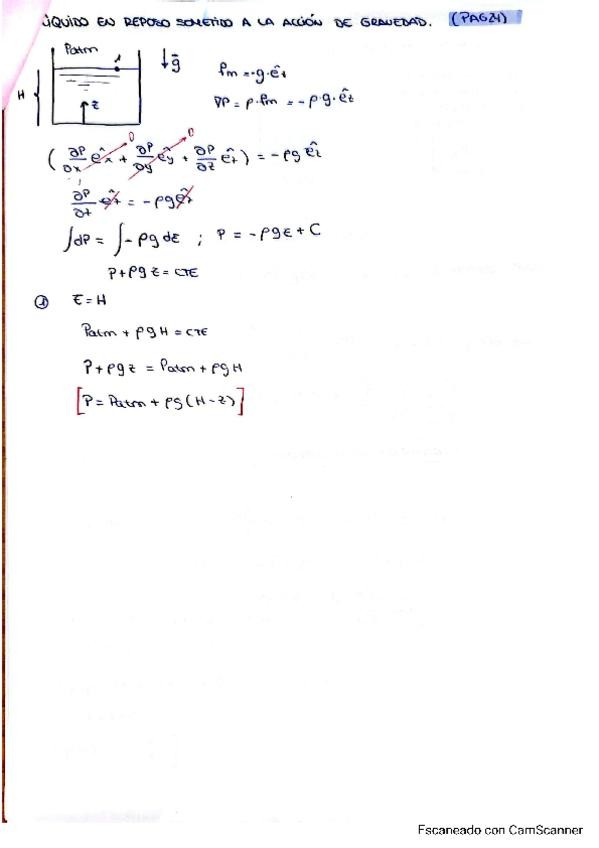 LIQUIDO EN REPOSO SOMETIDO A LA ACCIÓN DE GRAVEDAD. (PAG24)
Patm
1
↓ḡ
fm = -g·êz
H
z
∇P = ρ·fm = -ρ·g·êz
(∂P/∂x êx + ∂P/∂y êy + ∂P/∂z êz) = -ρg êz
0 0
∂P/∂z êz = -ρg êz
∫dP = ∫-ρg dz ; P = -ρgz + C
P+ρgz = CTE
① z = H
Patm + ρgH = CTE
P+ρgz = Patm + ρgH
[P = Patm + ρg(H-z)]
Escaneado con CamScanner